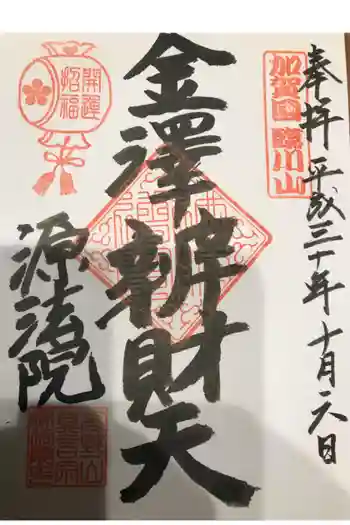 奉拝 平成三十年十月六日
加賀國臨川山
金澤辨財天
開運
招福
源法院